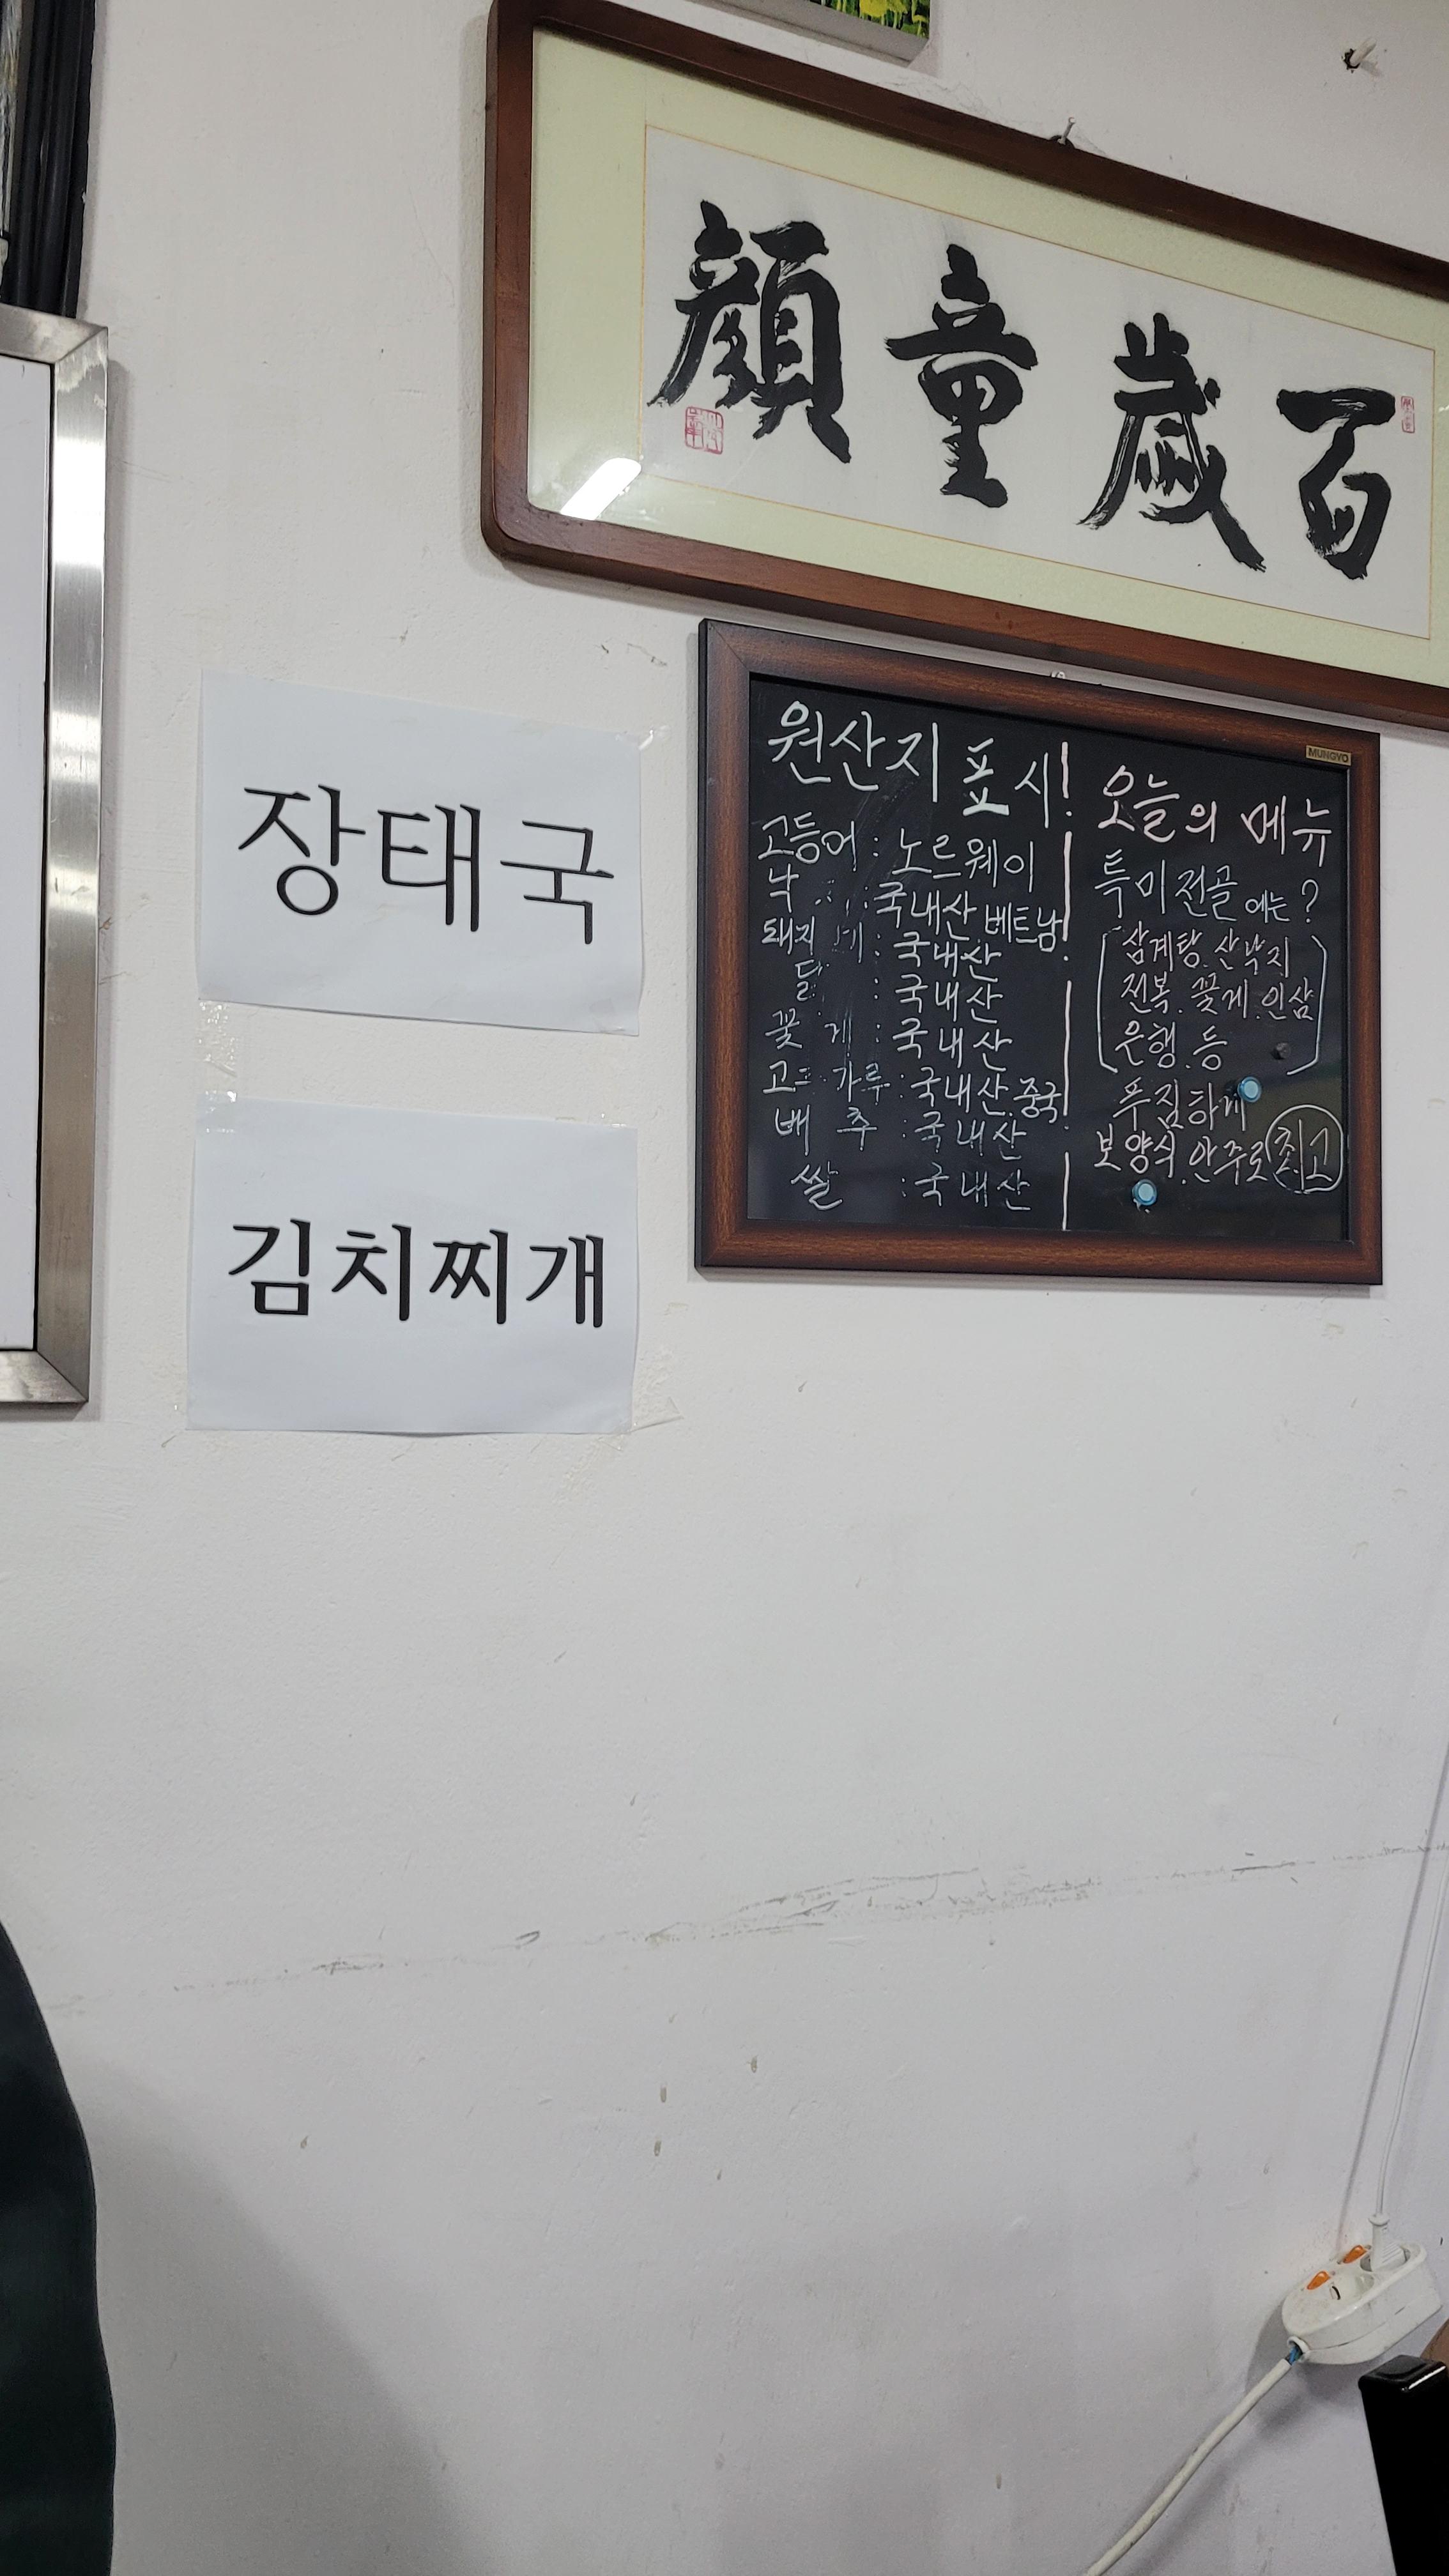 顔童歳百
MUNGYO
원산지 표시!
고등어 : 노르웨이
낙 : 국내산, 베트남
돼지 : 국내산
닭 : 국내산
꽃 게 : 국내산
가루 : 국내산, 중국
배 추 : 국내산
쌀 : 국내산
오늘의 메뉴
특미전골 에는?
삼계탕. 산낙지
전복. 꽃게. 인삼
은행. 등
푸짐하게
보양식. 안주로 최고
장태국
김치찌개